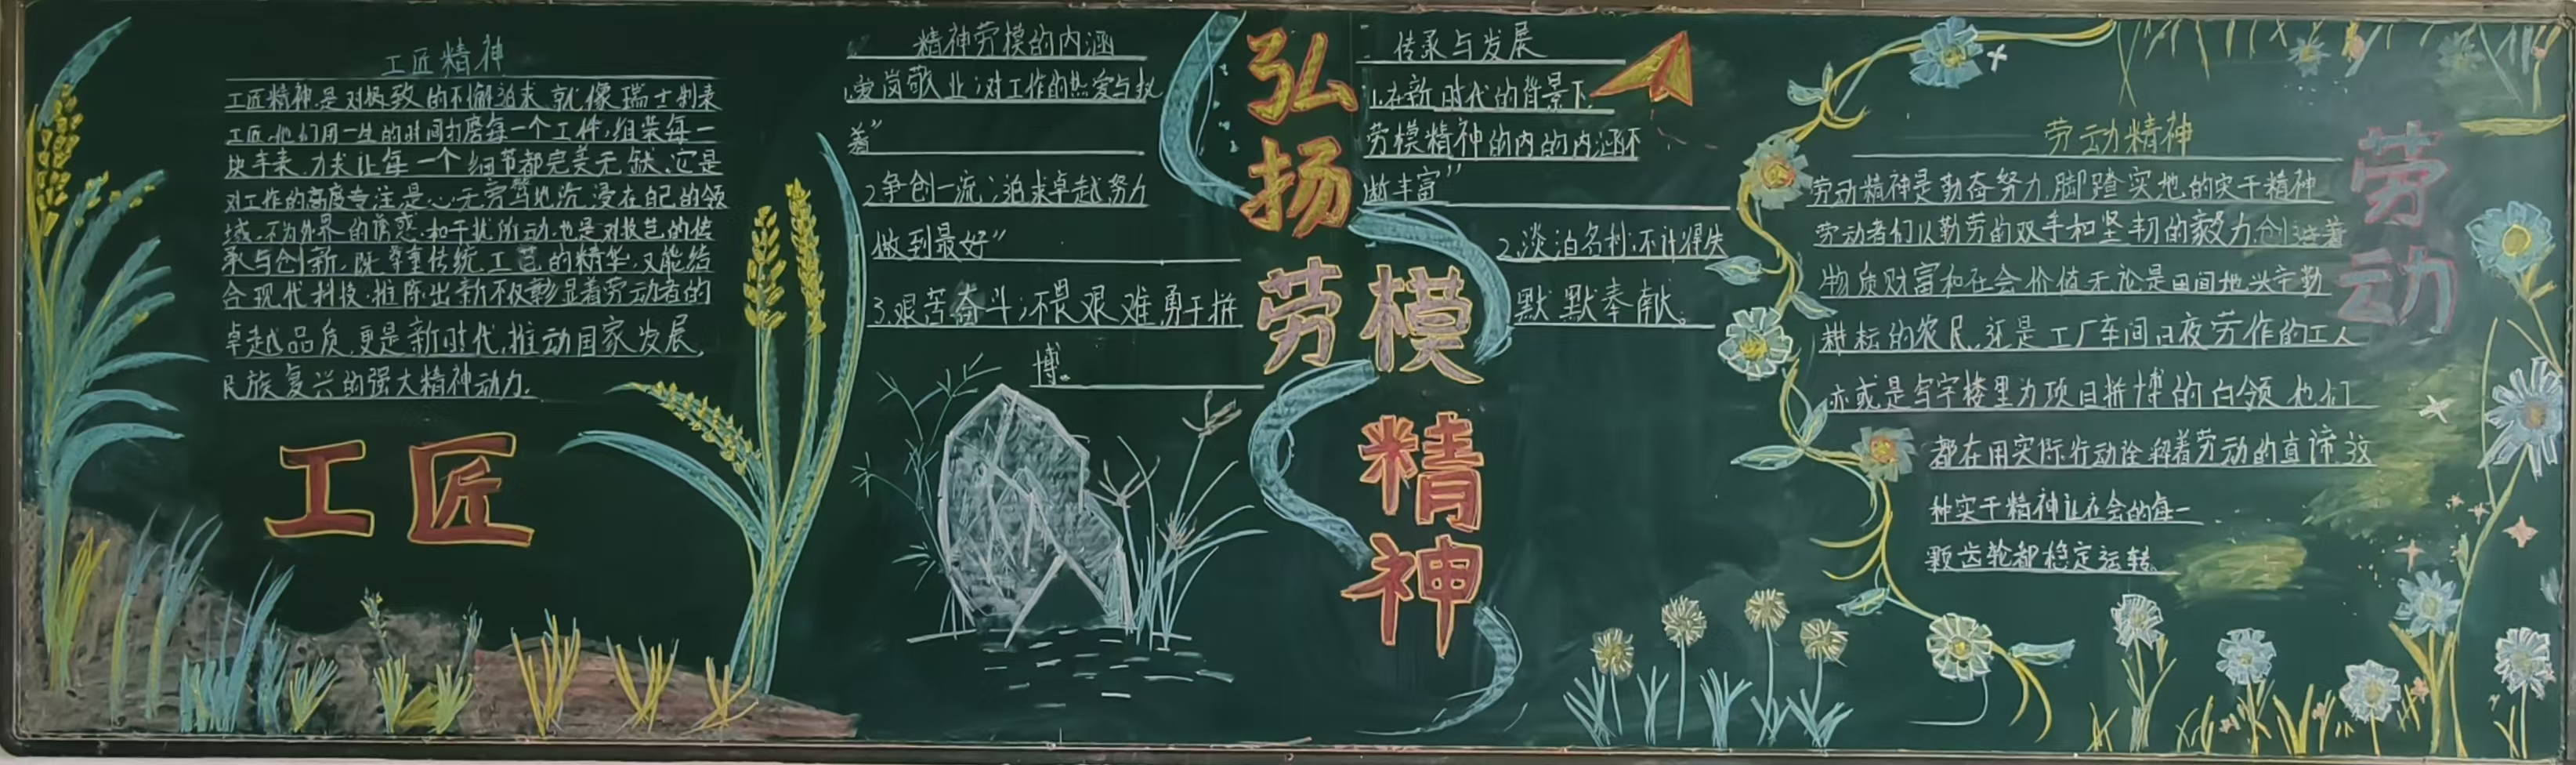 工匠精神
工匠精神,是对极致的不懈追求,就像瑞士制表
工匠,他们用一生的时间打磨每一个工件,组装每一
块手表,力求让每一个细节都完美无缺,还是
对工作的高度专注是心无旁骛地沉浸在自己的领
域,不为外界的诱惑和干扰所动,也是对技艺的传
承与创新,既尊重传统工艺的精华,又能结
合现代科技,推陈出新不仅彰显着劳动者的
卓越品质,更是新时代,推动国家发展,
民族复兴的强大精神动力.
工匠
精神劳模的内涵
1.爱岗敬业;对工作的热爱与执
着"
2.争创一流;追求卓越努力
做到最好"
3.艰苦奋斗;不畏艰难勇于拼
博。
弘扬
劳模
精神
传承与发展
1.在新时代的背景下,
劳模精神的内的内涵不
丰富"
2.淡泊名利;不计得失
默默奉献。
劳动精神
劳动精神是勤奋努力,脚踏实地的实干精神
劳动者们以勤劳的双手和坚韧的毅力,创造着
物质财富和社会价值无论是田间地头辛勤
耕耘的农民,还是工厂车间日夜劳作的工人
亦或是写字楼里为项目拼博的白领,他们
都在用实际行动诠释着劳动的真谛,这
种实干精神让社会的每一
颗齿轮都稳定运转.
劳动